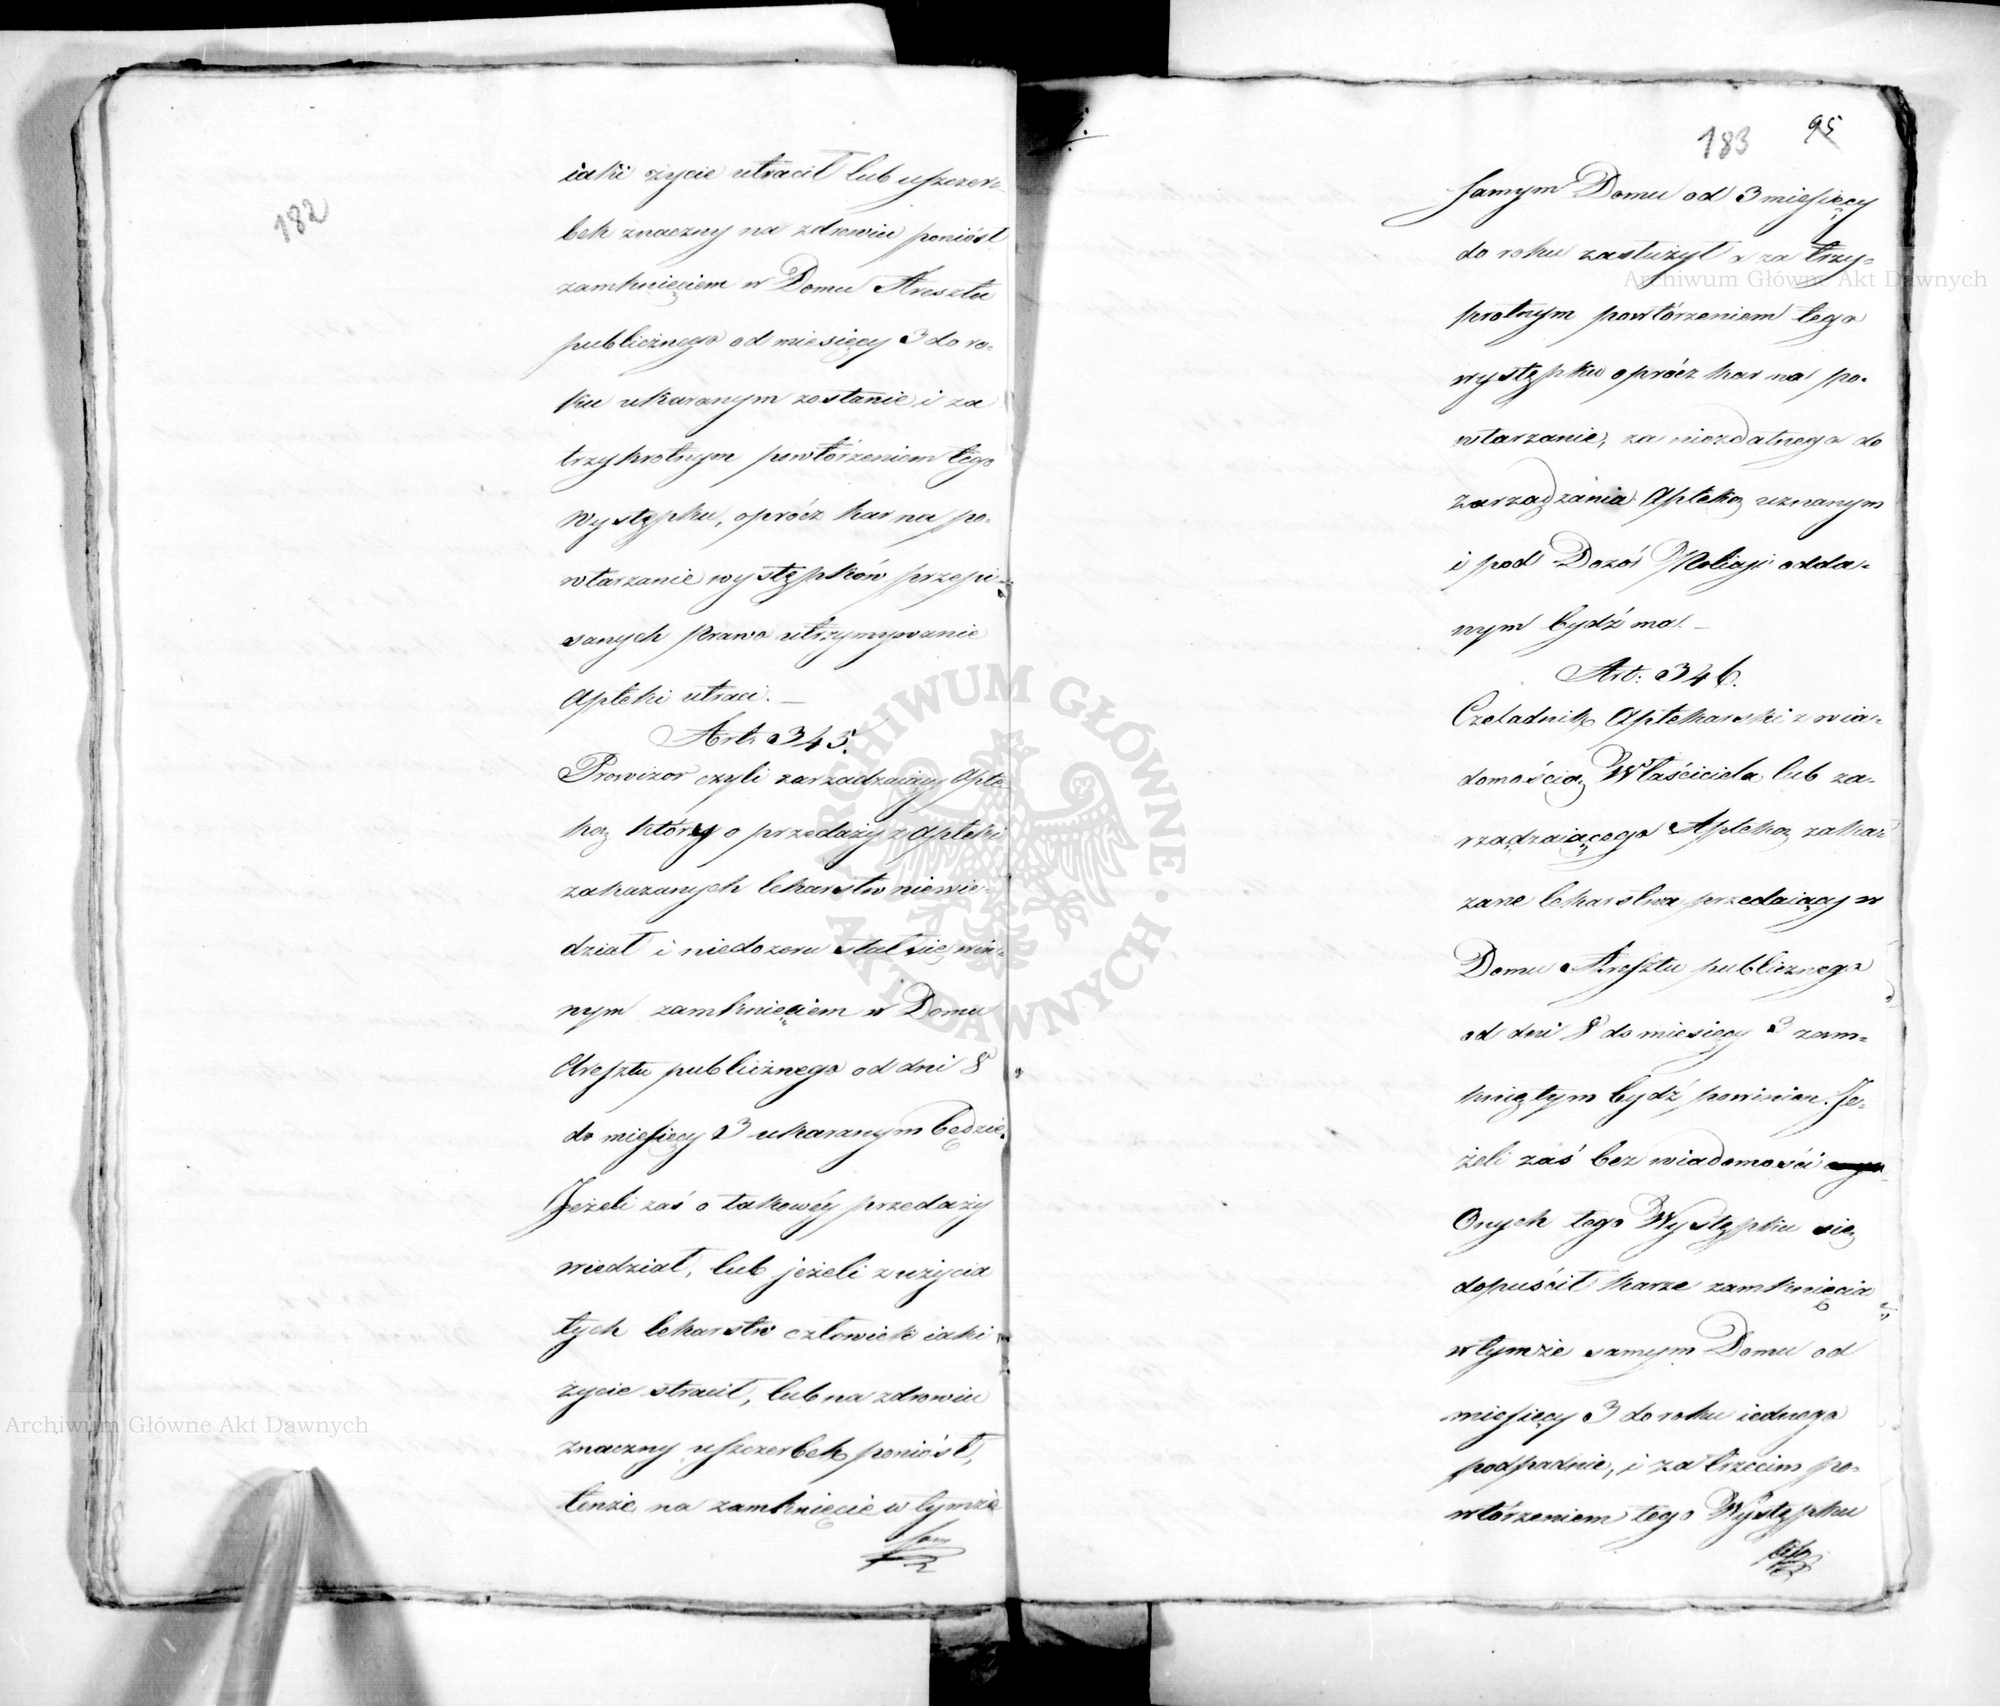 182
iaki życie utracił lub uszczer-
bek znaczny na zdrowiu poniósł
zamknięciem w Domu Aresztu
publicznego od miesięcy 3 do ro-
ku ukaranym zostanie i za
trzykrotnym powtórzeniem tego
Występku, oprócz kar na po-
wtarzanie występków przepi-
sanych Prawo utrzymywanie
Apteki utraci. —
Art: 345.
Prowizor czyli zarządzaiący Apte-
ką który o przedaży z Apteki
zakazanych lekarstw niewie-
dział i niedozoru stał się win-
nym zamknięciem w Domu
Aresztu publicznego od dni 8
do miesięcy 3 ukaranym będzie.
Jeżeli zaś o takowéy przedaży
wiedział, lub jeżeli z użycia
tych lekarstw człowiek iaki
życie stracił, lub na zdrowiu
znaczny uszczerbek poniósł,
tenże na zamknięcie w tymże
sam
183 95
samym Domu od 3 miesięcy
do roku zasłużył a za trzy-
krotnym powtórzeniem tego
występku oprócz kar na po-
wtarzanie, za niezdatnego do
zarządzania Apteką uznanym
i pod Dozór Policyi odda-
nym bydź ma. —
Art: 346.
Czeladnik Aptekarski z wia-
domością Właściciela lub za-
rządzaiącego Apteką zaka-
zane lekarstwa przedaiący w
Domu Aresztu publicznego
od dni 8 do miesięcy 3 zam-
kniętym bydź powinien. Je-
żeli zaś bez wiadomości
Onych tego Występku się
dopuścił karze zamknięcia
w tymże samym Domu od
miesięcy 3 do roku iednego
podpadnie, i za trzecim po-
wtórzeniem tego Występku
Archiwum Główne Akt Dawnych
Archiwum Główne Akt Dawnych
ARCHIWUM GŁÓWNE · AKT DAWNYCH ·